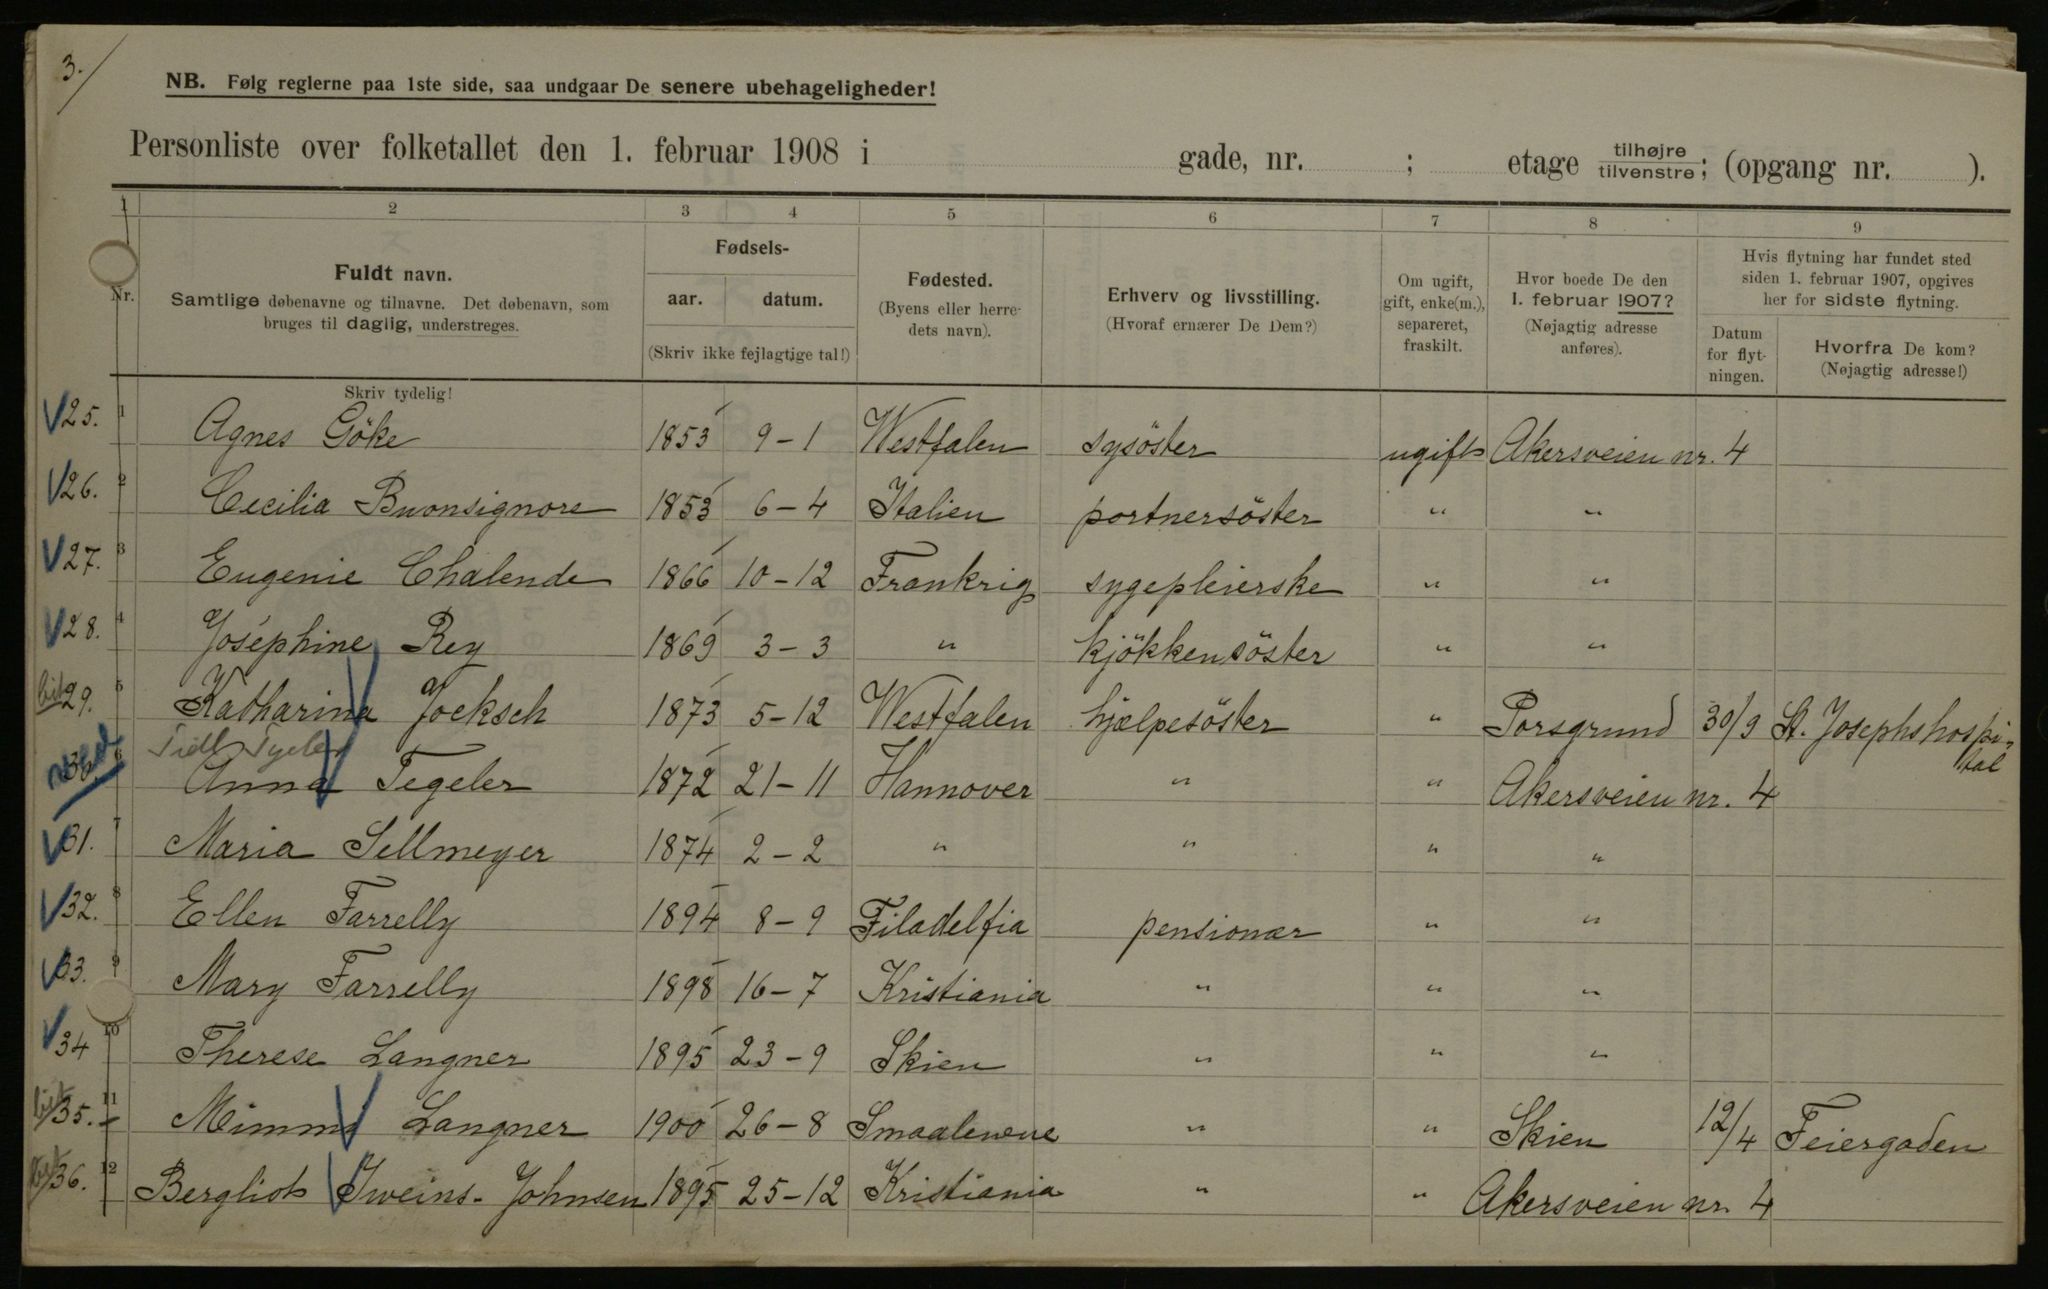 3.
NB. Følg reglerne paa 1ste side, saa undgaar De senere ubehageligheder!
Personliste over folketallet den 1. februar 1908 i gade, nr. ; etage tilhøjre tilvenstre ; (opgang nr. ).
1 2 3 4 5 6 7 8 9
Nr.
Fuldt navn.
Samtlige døbenavne og tilnavne. Det døbenavn, som
bruges til daglig, understreges.
Skriv tydelig!
Fødsels-
aar. datum.
(Skriv ikke fejlagtige tal!)
Fødested.
(Byens eller herre-
dets navn).
Erhverv og livsstilling.
(Hvoraf ernærer De Dem?)
Om ugift,
gift, enke(m.),
separeret,
fraskilt.
Hvor boede De den
1. februar 1907?
(Nøjagtig adresse
anføres).
Hvis flytning har fundet sted
siden 1. februar 1907, opgives
her for sidste flytning.
Datum
for flyt-
ningen.
Hvorfra De kom?
(Nøjagtig adresse!)
25. 1 Agnes Göke 1853 9-1 Westfalen sysöster ugift Akersveien nr. 4
26. 2 Cecilia Buonsignore 1853 6-4 Italien portnersöster " "
27. 3 Eugenie Chalende 1866 10-12 Frankrig sygepleierske " "
28. 4 Joséphine Rey 1869 3-3 " kjökkensöster " "
29. 5 Katharina Jocksch 1873 5-12 Westfalen hjælpesöster " Porsgrund 30/9 St. Josephshospi-
tal
6 Anna Tegeler 1872 21-11 Hannover " " Akersveien nr. 4
31. 7 Maria Sellmeyer 1874 2-2 " " " "
32. 8 Ellen Farrelly 1894 8-9 Filadelfia pensionær " "
33. 9 Mary Farrelly 1898 16-7 Kristiania " " "
34 10 Therese Langner 1895 23-9 Skien " " "
35. 11 Mimmi Langner 1900 26-8 Smaalenene " " Skien 12/4 Feiergaden
36. 12 Bergliot Iweins-Johnsen 1895 25-12 Kristiania " " Akersveien nr. 4